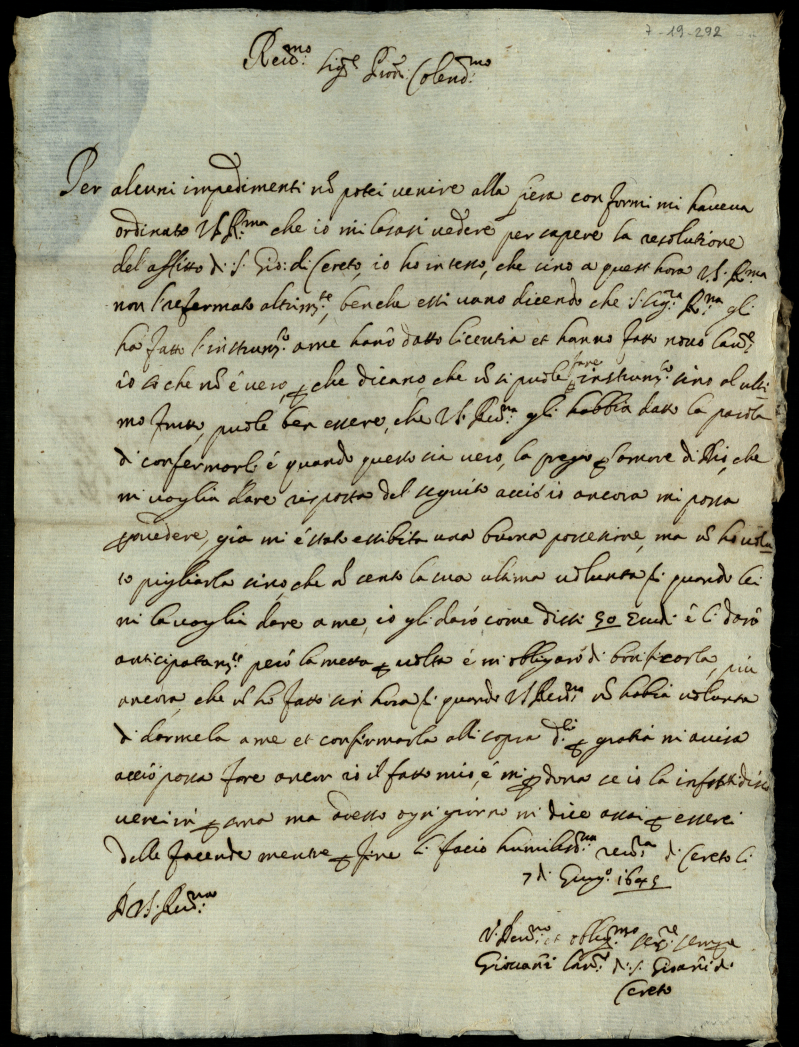 7-19-292
Reud:mo
Sig:re Pron: Colend:mo
Per alcuni impedimenti nõ potei venire alla fiera conformi mi haveva
ordinato V.S.R:ma che io mi lasasi vedere per sapere la resolutione
del affitto di S. Gio: di Cereto, io ho inteso, che sino a quest hora V.S.R:ma
non l'ha refermato altrim:te, benche essi vano dicendo che S. Sig:ria R:ma gli
ha fatto l'instrum:to a me hanõ datto licentia et hanno fatto novo
io so che nõ é vero, p che dicano, che nõ si puole fare instrum:to sino al ulti
mo frutto, puole ben essere, che V.S. Reu:ma gli habbia dato la parola
di confermarli é quando questo sia vero, la prego p l'amore di Dio, che
mi voglia dare risposta del seguito acció io ancora mi possa
pvedere, gia mi é stato essibita una buona possesione, ma nõ ho volu
to pigliarla sino, che nõ sento la sua ultima volunta si quando lei
mi la voglia dare a me, io gli daró come dissi 50 Scudi é li daró
anticipatam:te peró la metta p volta é mi obligaró di bonificarla, piu
ancora, che nõ ho fatto sin hora si quando V.S.Reu:ma nõ habia volunta
di darmela a me et confirmarla alli sopra d:ti p gratia mi avisa
acció possa fare ancor io il fatto mio, é mi pdona se io la infastidisco
verei in psona ma adesso ogni giorno mi dice assai p essere
delle facende mentre p fine li facio humiliss:ma reu:za di Cereto li
7 di Giug:o 1645
D V.S. Reu:ma
V. Reu:ma et oblig:mo ser:re sempre
Giovañi di S. Giovañi di
Cereto